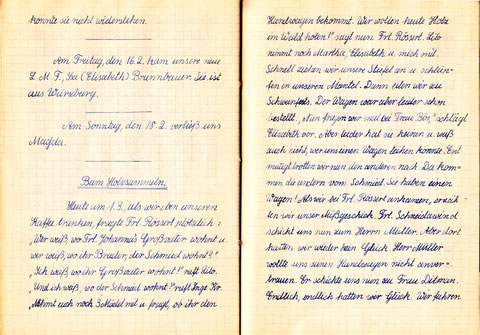 konnte sie nicht widerstehen.
Am Freitag, den 16.2. kam unsere neue
L.M.F., Isa (Elisabeth) Brannbauer. Sie ist
aus Würzburg.
Am Sonntag, den 18.2. verließ uns
Magda.
Beim Holzsammeln.
Heute am 1.3., als wir den unseren
Kaffee tranken, fragte Frl. Rössert plötzlich:
„Wer weiß, wo Frl. Johannas Großvater wohnt u.
wer weiß, wo ihr Bruder, der Schmied wohnt?"
„Ich weiß, wo ihr Großvater wohnt!" ruft Lilo.
„Und ich weiß, wo der Schmied wohnt!" ruft Inge Kr.
„Nehmt euch noch 3 Mädel mit u. fragt, ob ihr den
Handwagen bekommt. Wir wollen heute Holz
im Wald holen!" sagt nun Frl. Rössert. Lilo
nimmt noch Martha, Elisabeth u. mich mit.
Schnell ziehen wir unsere Stiefel an u. schlüp-
fen in unseren Mantel. Dann eilen wir zu
Der Wagen war aber leider schon
bestellt. „Nun fragen wir mal bei Frau Bör," schlägt
Elisabeth vor. Aber leider hat sie keinen u. weiß
auch nicht, wer uns einen Wagen leihen könnte. Ent
mutigt trotten wir nun den anderen nach. Da kom-
men die andern vom Schmied. Sie haben einen
Wagen! Als wir bei Frl. Rössert ankamen, erzähl-
ten wir unser Mißgeschick. Frl.
schickt uns nun zum Herrn Müller. Aber dort
hatten wir wieder kein Glück. Herr Müller
wollte uns seinen Handwagen nicht anver-
trauen. Er schickte uns nun zu Frau
Endlich, endlich hatten wir Glück. Wir fuhren